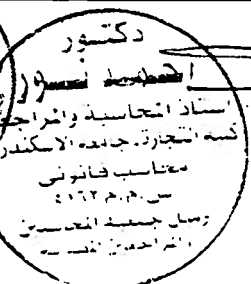 دكتور
أحمد نور
استاذ المحاسبة والمراجعة
كلية التجارة . جامعة الاسكندر
محاسب قانونى
س.م.م ٤١٦٢
زميل جمعية المحاسبين